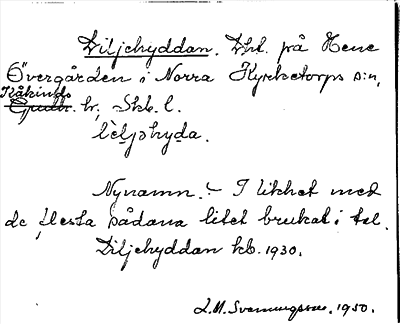 Liljehyddan. Lht. på Hene
Övergården i Norra Kyrketorps s:n,
Kåkinds
Gudh. hr, Skb. l.
lìljəhyda.
Nynamn. – I likhet med
de flesta sådana litet brukat i tal.
Liljehyddan kb. 1930.
L.M. Svenungsson. 1950.